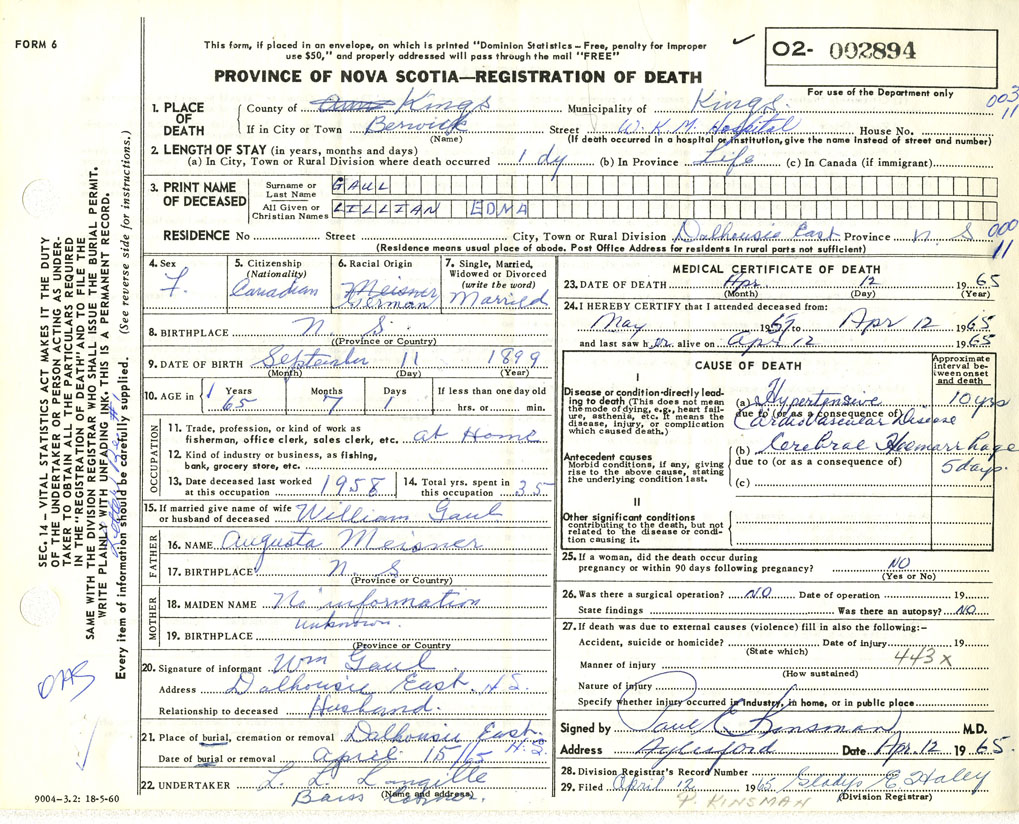 FORM 6
This form, if placed in an envelope, on which is printed "Dominion Statistics – Free, penalty for improper
use $50," and properly addressed will pass through the mail "FREE"
PROVINCE OF NOVA SCOTIA—REGISTRATION OF DEATH
02- 002894
For use of the Department only
003
11
1. PLACE OF DEATH
County of Kings Municipality of Kings
If in City or Town Berwick Street W. K. M. Hospital House No.
(Name) (If death occurred in a hospital or institution, give the name instead of street and number)
2. LENGTH OF STAY (in years, months and days)
(a) In City, Town or Rural Division where death occurred 1 dy (b) In Province Life (c) In Canada (if immigrant)
3. PRINT NAME OF DECEASED
Surname or Last Name GAUL
All Given or Christian Names LILLIAN EDNA
RESIDENCE No Street City, Town or Rural Division Dalhousie East Province N S
000
11
(Residence means usual place of abode. Post Office Address for residents in rural parts not sufficient)
4. Sex F.
5. Citizenship (Nationality) Canadian
6. Racial Origin Meisner German
7. Single, Married, Widowed or Divorced (write the word) Married
8. BIRTHPLACE N S.
(Province or Country)
9. DATE OF BIRTH September 11 1899
(Month) (Day) (Year)
10. AGE in Years 65 Months 7 Days 1 If less than one day old hrs. or min.
OCCUPATION
11. Trade, profession, or kind of work as fisherman, office clerk, sales clerk, etc. at Home
12. Kind of industry or business, as fishing, bank, grocery store, etc.
13. Date deceased last worked at this occupation 1958 14. Total yrs. spent in this occupation 35
15. If married give name of wife or husband of deceased William Gaul
FATHER
16. NAME Augusta Meisner
17. BIRTHPLACE N. S
(Province or Country)
MOTHER
18. MAIDEN NAME No information
19. BIRTHPLACE unknown.
(Province or Country)
20. Signature of informant Wm Gaul
Address Dalhousie East. N.S.
Relationship to deceased Husband.
21. Place of burial, cremation or removal Dalhousie East N.S.
Date of burial or removal April 15/65
22. UNDERTAKER L. L. Langille
(Name and address)
Barss Corner.
MEDICAL CERTIFICATE OF DEATH
23. DATE OF DEATH Apr 12 1965
(Month) (Day) (Year)
24. I HEREBY CERTIFY that I attended deceased from:
May 1957 to Apr 12 1965
and last saw her alive on Apr 12 1965
CAUSE OF DEATH
Approximate interval between onset and death
I
Disease or condition directly leading to death (This does not mean the mode of dying, e.g., heart failure, asthenia, etc. It means the disease, injury, or complication which caused death.)
(a) Hypertensive 10 yrs
due to (or as a consequence of)
Cardiovascular Disease
(b) Cerebral Hoemarrhage
due to (or as a consequence of) 5 days.
(c)
Antecedent causes
Morbid conditions, if any, giving rise to the above cause, stating the underlying condition last.
II
Other significant conditions contributing to the death, but not related to the disease or condition causing it.
25. If a woman, did the death occur during pregnancy or within 90 days following pregnancy? NO
(Yes or No)
26. Was there a surgical operation? NO Date of operation 19
State findings Was there an autopsy? NO
27. If death was due to external causes (violence) fill in also the following:–
Accident, suicide or homicide? Date of injury 19
(State which)
443x
Manner of injury
(How sustained)
Nature of injury
Specify whether injury occurred in industry, in home, or in public place
Signed by Paul E Kinsman M.D.
Address Aylesford Date Apr. 12 1965.
28. Division Registrar's Record Number
29. Filed April 12 1965 Gladys E Haley
(Division Registrar)
P. KINSMAN
SEC. 14 – VITAL STATISTICS ACT MAKES IT THE DUTY
OF THE UNDERTAKER OR PERSON ACTING AS UNDER-
TAKER TO OBTAIN ALL THE PARTICULARS REQUIRED
IN THE "REGISTRATION OF DEATH" AND TO FILE THE
SAME WITH THE DIVISION REGISTRAR WHO SHALL ISSUE THE BURIAL PERMIT.
WRITE PLAINLY WITH UNFADING INK. THIS IS A PERMANENT RECORD.
Every item of information should be carefully supplied. (See reverse side for instructions.)
9004-3.2: 18-5-60